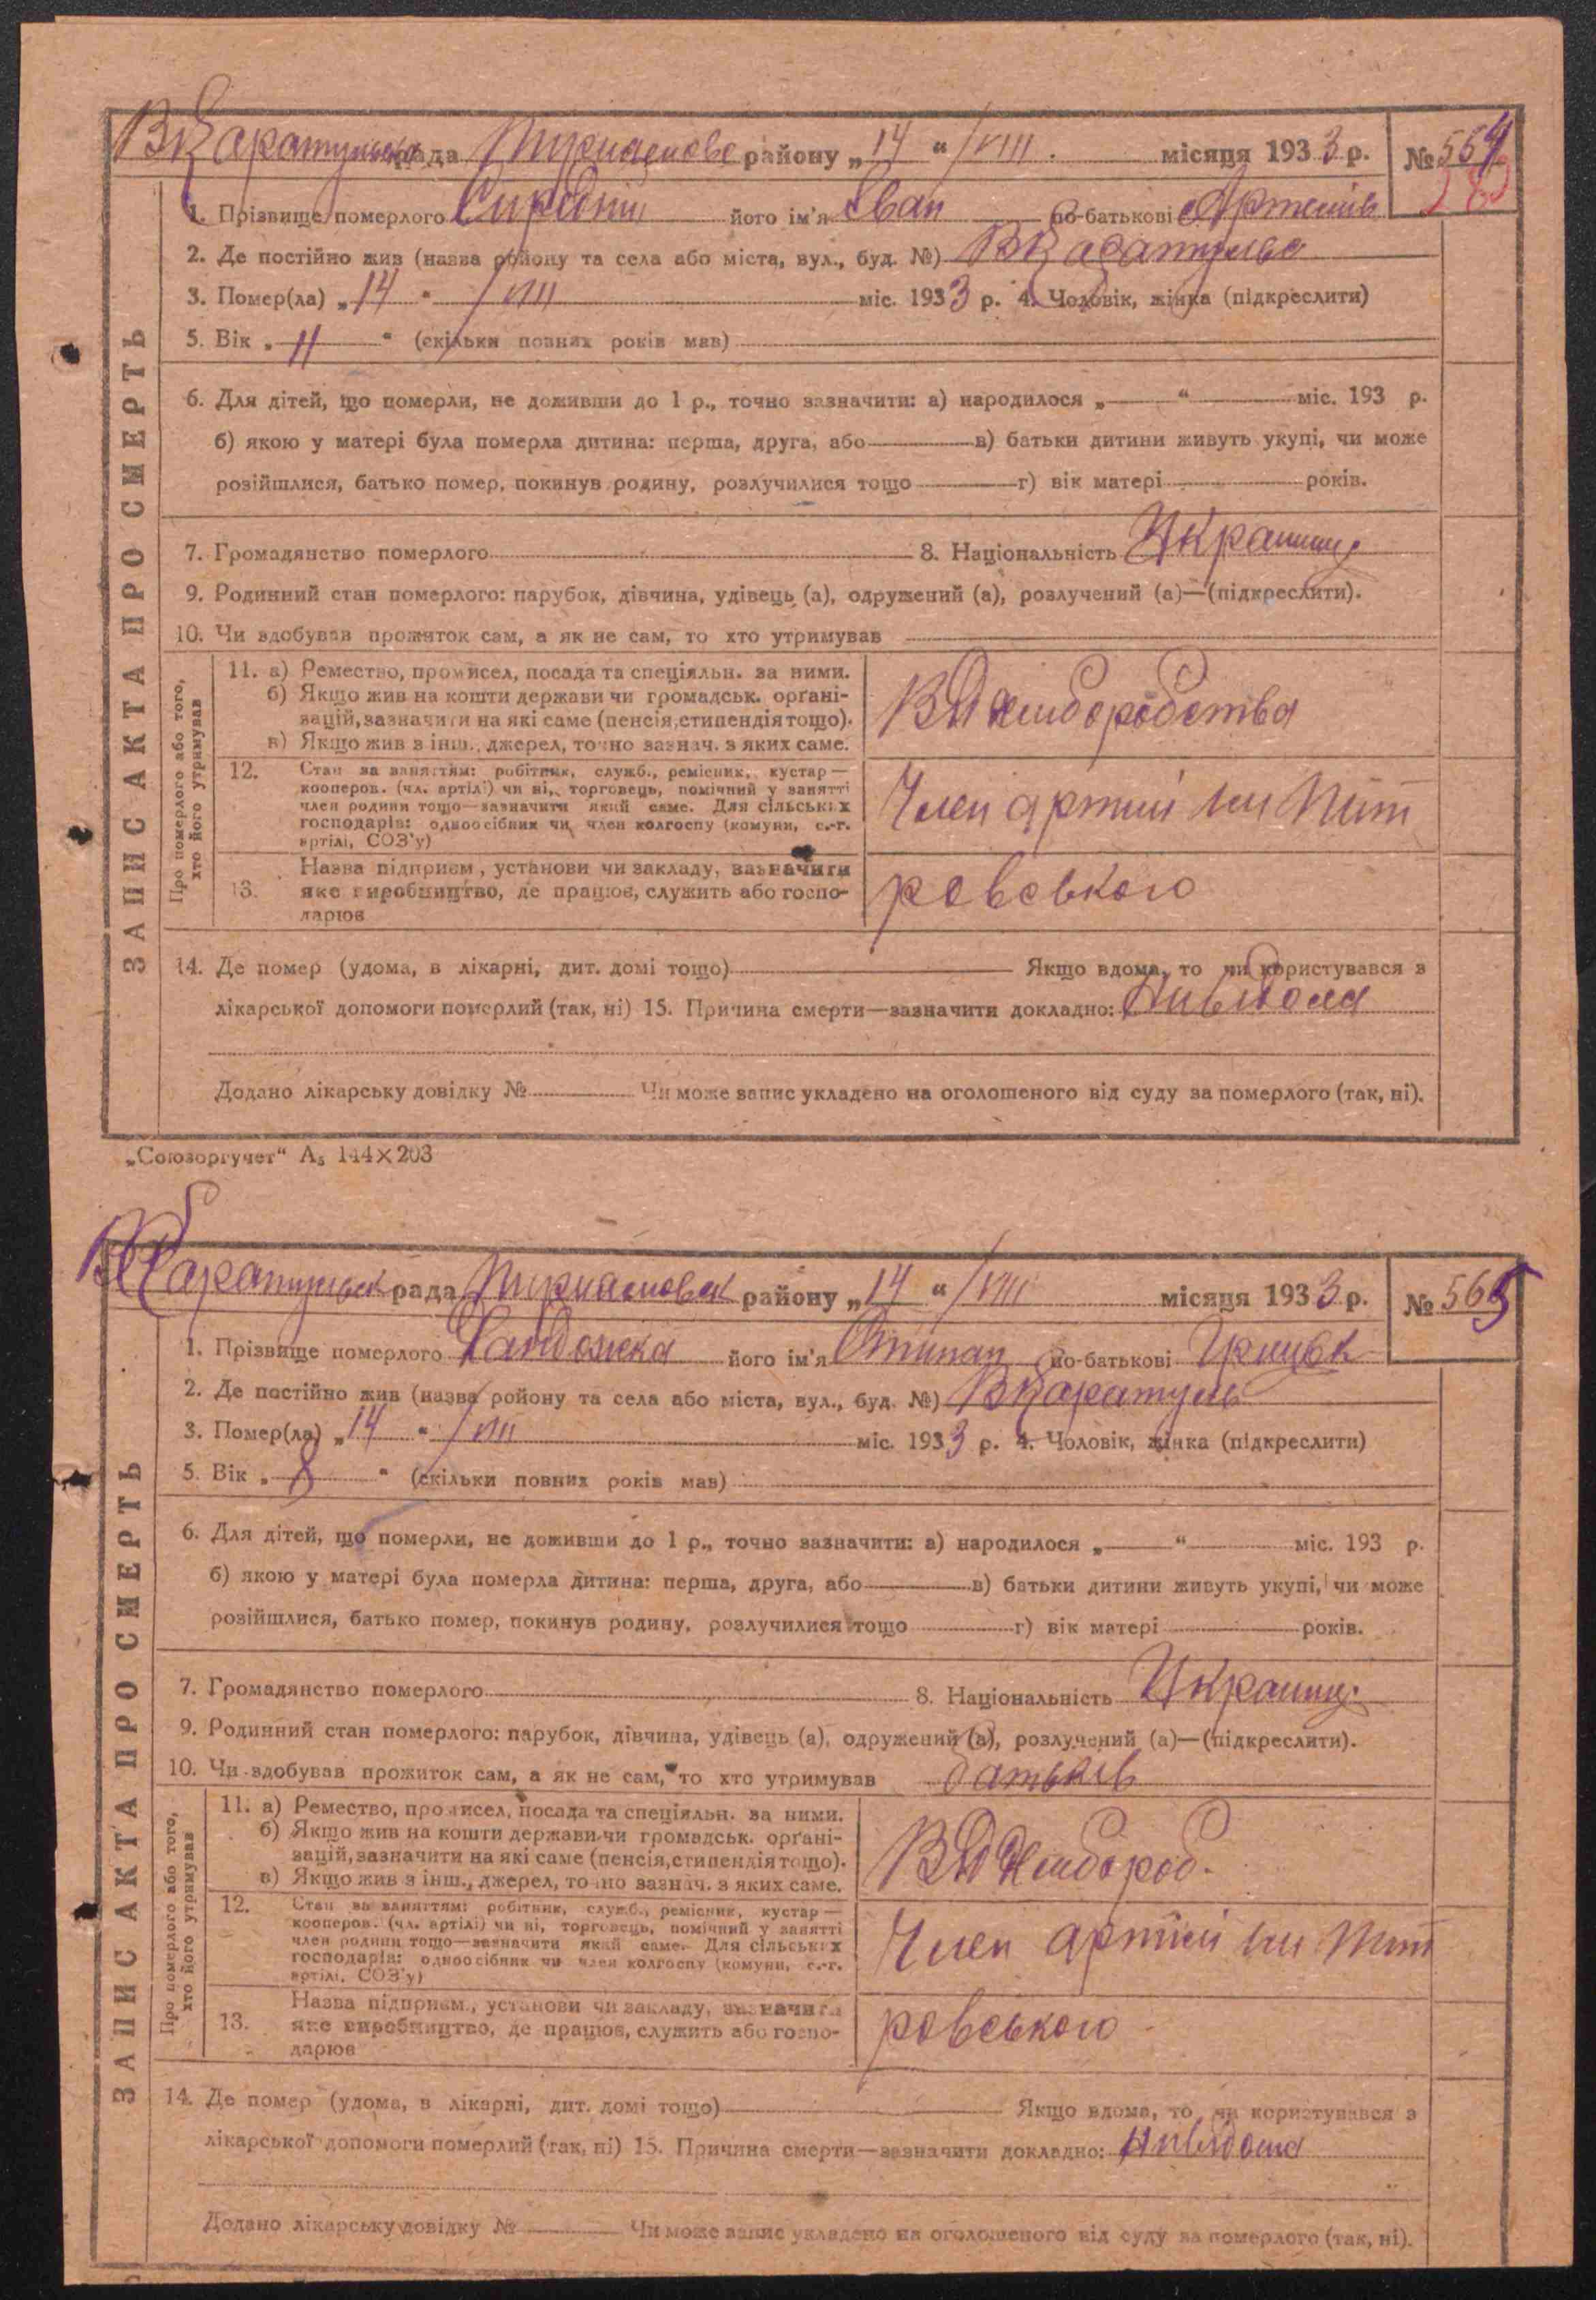 В Каратульська рада Переяслово району „14 “ /VIII . місяця 1933 р. № 564
1. Прізвище померлого його ім'я Іван по-батькові Артемів
2. Де постійно жив (назва району та села або міста, вул., буд. №) В Каратульс
3. Помер(ла) „14 “ /VIII міс. 1933 р. 4. Чоловік, жінка (підкреслити)
5. Вік „ 11 “ (скільки повних років мав)
6. Для дітей, що померли, не доживши до 1 р., точно зазначити: а) народилося „ “ міс. 193 р.
б) якою у матері була померла дитина: перша, друга, або в) батьки дитини живуть укупі, чи може
розійшлися, батько помер, покинув родину, розлучилися тощо г) вік матері років.
7. Громадянство померлого 8. Національність Украинц
9. Родинний стан померлого: парубок, дівчина, удівець (а), одружений (а), розлучений (а)—(підкреслити).
10. Чи здобував прожиток сам, а як не сам, то хто утримував
ЗАПИС АКТА ПРО СМЕРТЬ
Про померлого або того, хто його утримував
11. а) Ремество, промисел, посада та спеціяльн. за ними.
б) Якщо жив на кошти держави чи громадськ. орґані-
зацій, зазначити на які саме (пенсія, стипендія тощо).
в) Якщо жив з інш., джерел, точно зазнач. з яких саме.
Від хліборобства
12. Стан за заняттям: робітник, служб., ремісник, кустар—
кооперов. (чл. артілі) чи ні, торговець, помічний у занятті
член родини тощо—зазначити який саме. Для сільських
господарів: одноосібник чи член колгоспу (комуни, с.-г.
артілі, СОЗ'у)
Член артілі ім Пет
13. Назва підприєм., установи чи закладу, зазначити
яке виробництво, де працює, служить або госпо-
дарює
ровського
14. Де помер (удома, в лікарні, дит. домі тощо) Якщо вдома, то чи користувався з
лікарської допомоги померлий (так, ні) 15. Причина смерти—зазначити докладно:
Додано лікарську довідку № Чи може запис укладено на оголошеного від суду за померлого (так, ні).
„Союзоргучет“ А5 144×203
В Каратульськ рада Переясловск району „14 “ /VIII місяця 1933 р. № 565
1. Прізвище померлого його ім'я Степан по-батькові Грицьк
2. Де постійно жив (назва району та села або міста, вул., буд. №) В Каратуль
3. Помер(ла) „14 “ /VIII міс. 1933 р. 4. Чоловік, жінка (підкреслити)
5. Вік „ 8 “ (скільки повних років мав)
6. Для дітей, що померли, не доживши до 1 р., точно зазначити: а) народилося „ “ міс. 193 р.
б) якою у матері була померла дитина: перша, друга, або в) батьки дитини живуть укупі, чи може
розійшлися, батько помер, покинув родину, розлучилися тощо г) вік матері років.
7. Громадянство померлого 8. Національність Украинц.
9. Родинний стан померлого: парубок, дівчина, удівець (а), одружений (а), розлучений (а)—(підкреслити).
10. Чи здобував прожиток сам, а як не сам, то хто утримував батьків
ЗАПИС АКТА ПРО СМЕРТЬ
Про померлого або того, хто його утримував
11. а) Ремество, промисел, посада та спеціяльн. за ними.
б) Якщо жив на кошти держави чи громадськ. орґані-
зацій, зазначити на які саме (пенсія, стипендія тощо).
в) Якщо жив з інш., джерел, точно зазнач. з яких саме.
Від хлібороб.
12. Стан за заняттям: робітник, служб., ремісник, кустар—
кооперов. (чл. артілі) чи ні, торговець, помічний у занятті
член родини тощо—зазначити який саме. Для сільських
господарів: одноосібник чи член колгоспу (комуни, с.-г.
артілі, СОЗ'у)
Член артілі ім Пет
13. Назва підприєм., установи чи закладу, зазначити
яке виробництво, де працює, служить або госпо-
дарює
ровського
14. Де помер (удома, в лікарні, дит. домі тощо) Якщо вдома, то чи користувався з
лікарської допомоги померлий (так, ні) 15. Причина смерти—зазначити докладно:
Додано лікарську довідку № Чи може запис укладено на оголошеного від суду за померлого (так, ні).